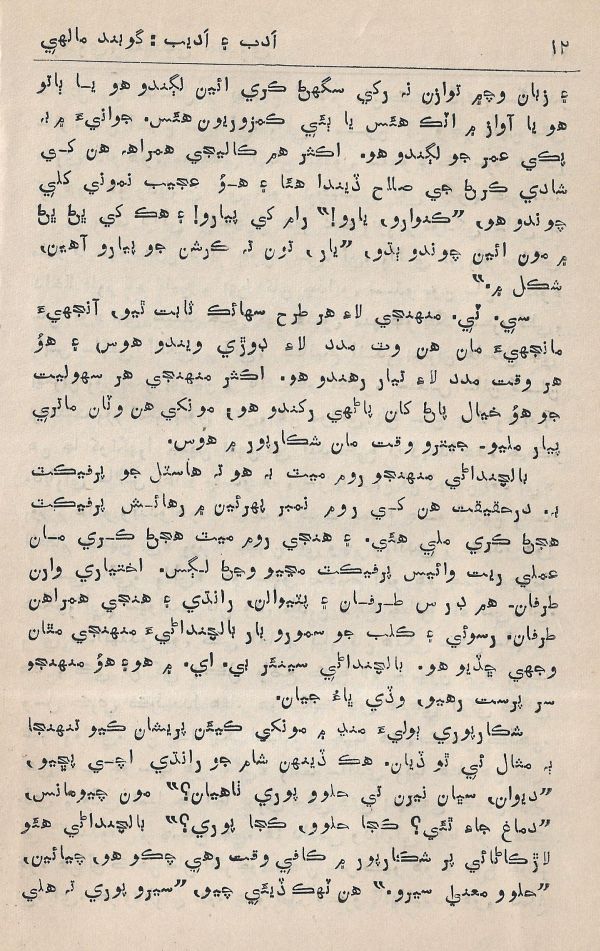 ۱۲ اَدب ۽ اَديب : گوبند مالهي
۽ زبان وچ۾ توازن نہ رکي سگهڻ ڪري ائين لڳندو هو يا ٻاٽو
هو يا آواز ۾ اٽڪ هئس يا ٻئي ڪمزوريون هئس. جوانيءَ ۾ بہ
پڪي عمر جو لڳندو هو. اڪثر هم ڪاليجي همراهہ هن کي
شادي ڪرڻ جي صلاح ڏيندا هئا ۽ هوُ عجيب نموني کلي
چوندو هو، ”ڪنوارو، يارو!“ رام کي پيارو! ۽ هڪ کي ڀڻ ڀڻ
۾ مون ائين چوندو ٻڌو، ”يار، تون تہ ڪرشن جو پيارو آهين،
شڪل ۾.“
سي. ٽي. منهنجي لاءِ هر طرح سهائڪ ثابت ٿيو، آنجهيءَ
مانجهيءَ مان هن وٽ مدد لاءِ ڊوڙي ويندو هوس ۽ هوُ
هر وقت مدد لاءِ تيار رهندو هو. اڪثر منهنجي هر سهوليت
جو هوُ خيال پاڻ کان پاڻهي رکندو هو؛ مونکي هن وٽان ماٽري
پيار مليو۔ جيترو وقت مان شڪارپور ۾ هوس.
ٻالچنداڻي منهنجو روم ميٽ بہ هو تہ هاسٽل جو پرفيڪٽ
بہ. درحقيقت هن کي روم نمبر پهرئين ۾ رهائش پرفيڪٽ
هجڻ ڪري ملي هئي. ۽ هنجي روم ميٽ هجڻ ڪري مان
عملي ريت وائيس پرفيڪٽ مڃيو وڃڻ لڳس. اختياري وارن
طرفان۔ هم درس طرفان ۽ پٽيوالن، رانڌي ۽ هنجي همراهن
طرفان. رسوئي ۽ ڪلب جو سمورو بار ٻالچنداڻيءَ منهنجي مٿان
وجهي ڇڏيو هو. ٻالچنداڻي سينئر بي. اي. ۾ هو۽ هوُ منهنجو
سر پرست رهيو، وڏي ڀاءُ جيان.
شڪارپوري ٻوليءَ منڍ ۾ مونکي ڪيئن پريشان ڪيو تنهنجا
ٻہ مثال ئي ٿو ڏيان. هڪ ڏينهن شام جو رانڌي اچي پڇيو،
”ديوان، سڀان نيرن تي حلوو پوري ٺاهيان؟“ مون چيومانس،
”دماغ جاءِ ٿئي؟ ڪجا حلوو، ڪجا پوري؟“ ٻالچنداڻي هئو
لاڙڪاڻائي پر شڪارپور ۾ ڪافي وقت رهي چڪو هو، چيائين،
”حلوو معنيٰ سيرو.“ هن ٽهڪ ڏيئي چيو، ”سيرو پوري تہ هلي